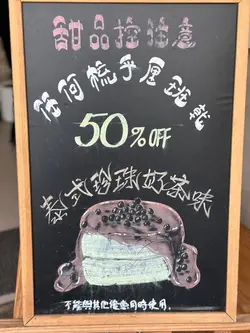 甜品控注意
任何梳乎厘班戟
50% OFF
泰式珍珠奶茶味
不能與其他優惠同時使用。